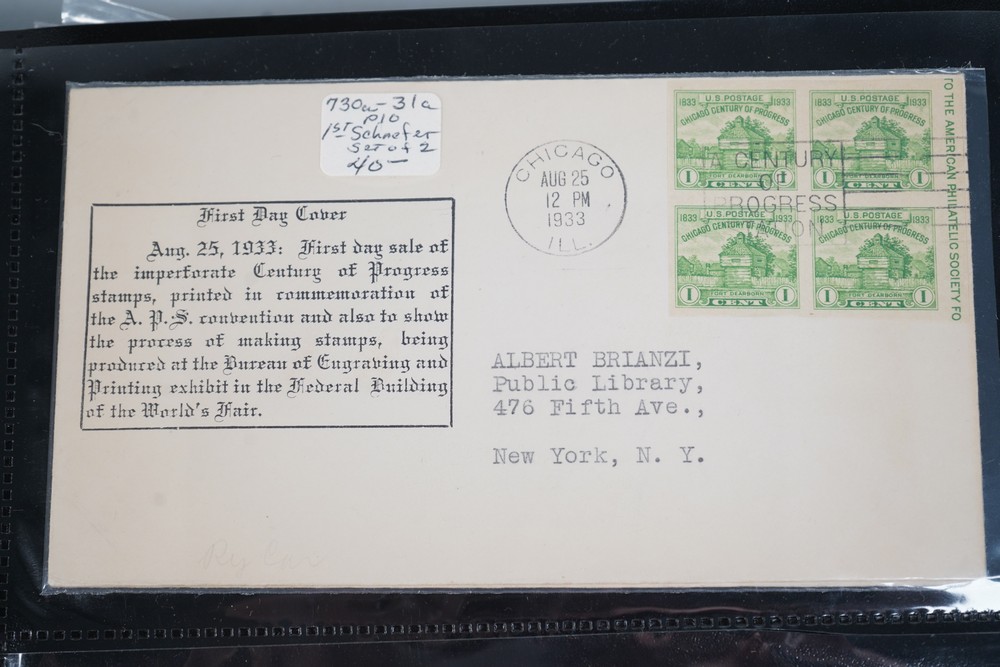 730a-31a
P10
1st Schaefer
Set of 2
40-
First Day Cover
Aug. 25, 1933: First day sale of
the imperforate Century of Progress
stamps, printed in commemoration of
the A. P. S. convention and also to show
the process of making stamps, being
produced at the Bureau of Engraving and
Printing exhibit in the Federal Building
of the World's Fair.
CHICAGO
AUG 25
12 PM
1933
ILL.
1833 U.S. POSTAGE 1933
CHICAGO CENTURY OF PROGRESS
FORT DEARBORN
1 CENT 1
1833 U.S. POSTAGE 1933
CHICAGO CENTURY OF PROGRESS
FORT DEARBORN
1 CENT 1
1833 U.S. POSTAGE 1933
CHICAGO CENTURY OF PROGRESS
FORT DEARBORN
1 CENT 1
1833 U.S. POSTAGE 1933
CHICAGO CENTURY OF PROGRESS
FORT DEARBORN
1 CENT 1
A CENTURY
OF
PROGRESS
STATION
TO THE AMERICAN PHILATELIC SOCIETY FO
ALBERT BRIANZI,
Public Library,
476 Fifth Ave.,
New York, N. Y.